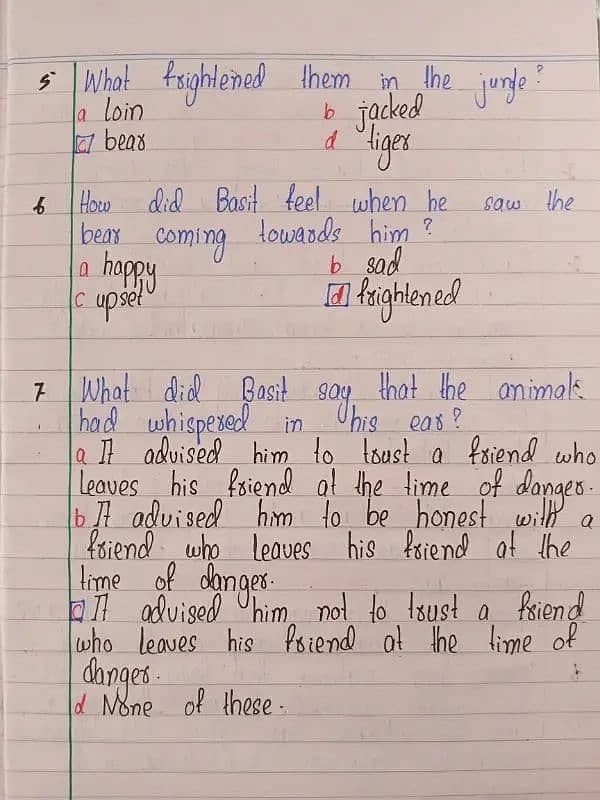 5 What frightened them in the junge?
a loin b jacked
c bear d tiger
6 How did Basit feel when he saw the
bear coming towards him?
a happy b sad
c upset d frightened
7 What did Basit say that the animal
had whispered in his ear?
a It advised him to trust a friend who
leaves his friend at the time of danger.
b It advised him to be honest with a
friend who leaves his friend at the
time of danger.
c It advised him not to trust a friend
who leaves his friend at the time of
danger.
d None of these.